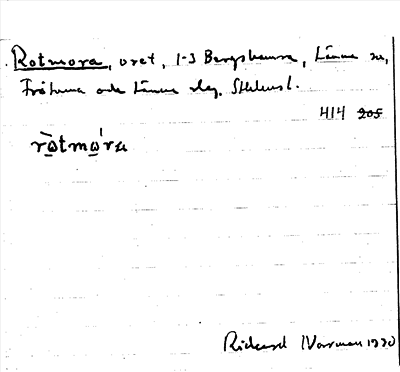 Rotmora, oret, 1-3 Bergshamra, Länna sn,
Frötuna och Länna slg, Sthlms l.
414 205
rὼtmώra
Rickard Norrman 1930